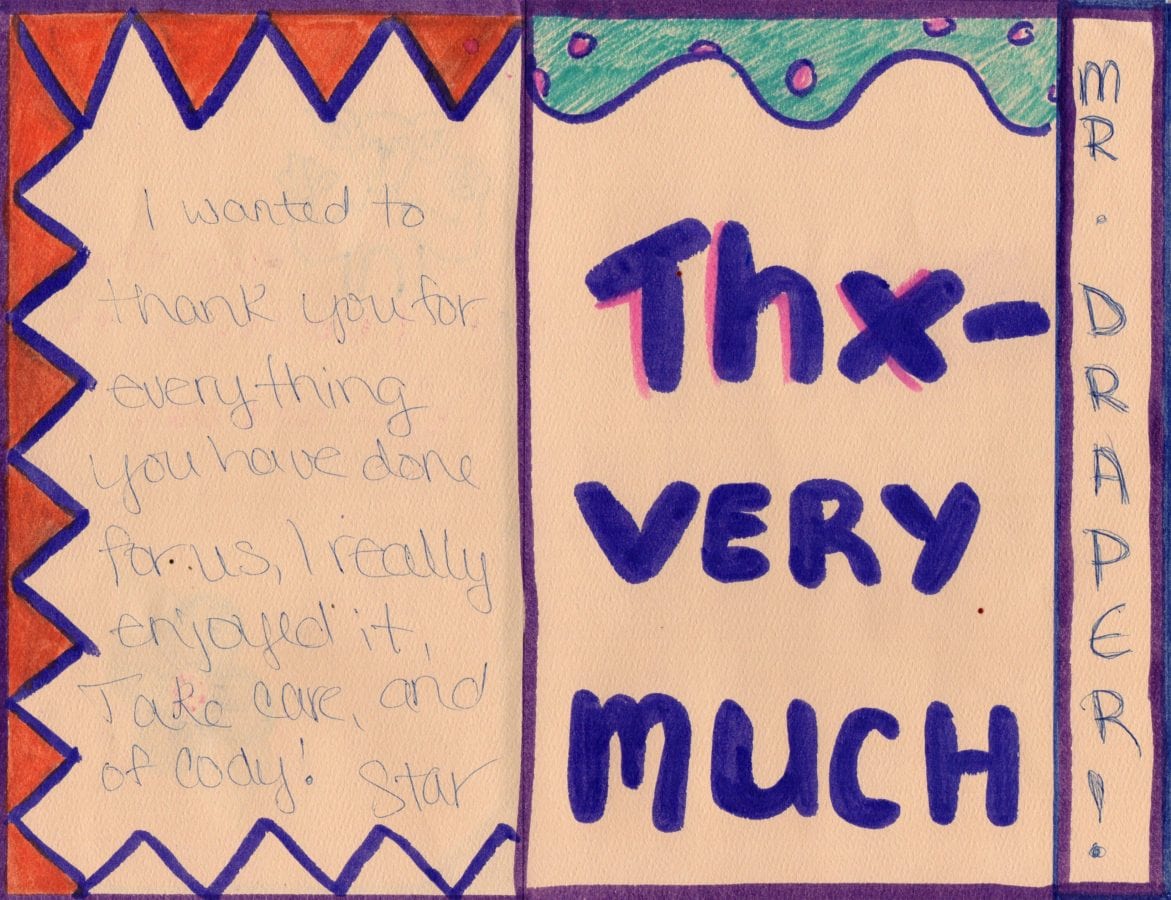 I wanted to
thank you for
everything
you have done
for us, I really
enjoyed it,
Take care, and
of cody!
Star
Thx-
VERY
MUCH
MR. DRAPER!